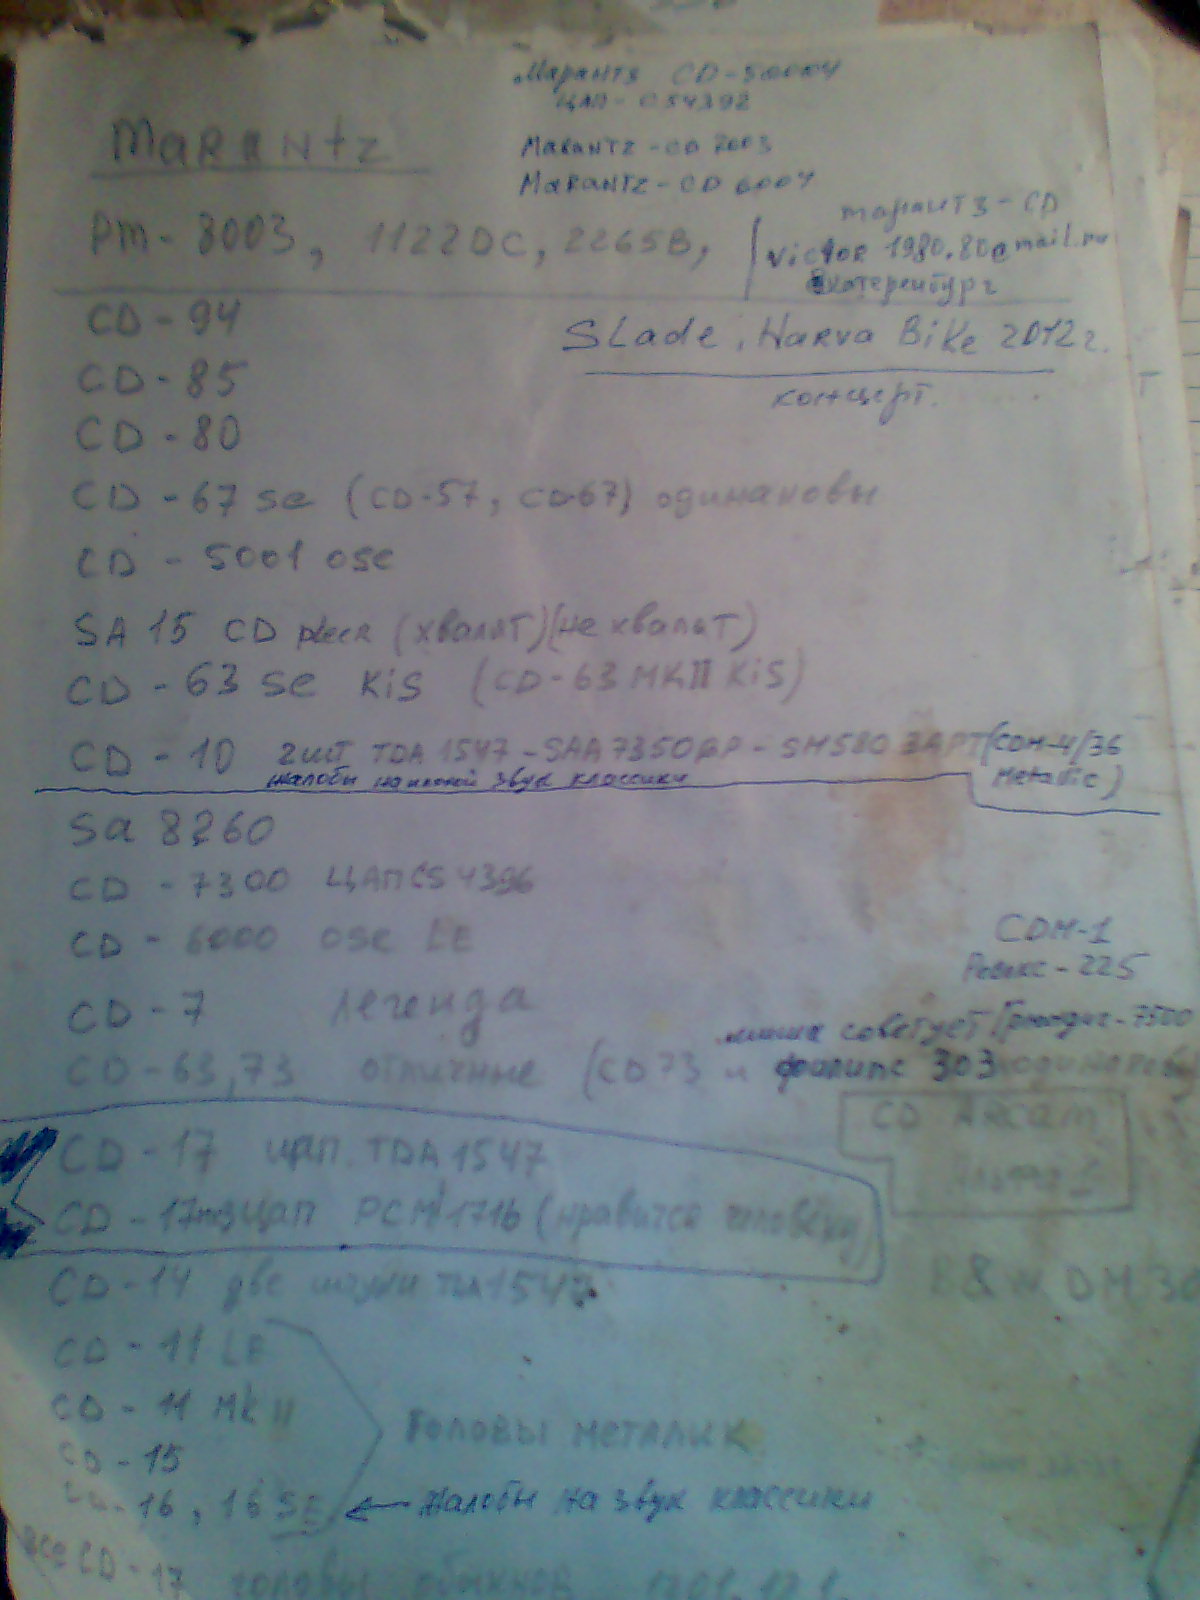 Марантз CD-5004
ЦАП-CS4392
MARANTZ
MARANTZ-CD 7003
MARANTZ-CD 6004
PM-8003, 1122DC, 2265B,
марантз-CD
victor 1980.80@mail.ru
Екатеренбург
CD-94
SLade, Narva Bike 2012г.
CD-85
концерт.
CD-80
CD-67 se (CD-57, CD-67) одинаковы
CD-5001 ose
SA 15 CD pleer (хвалят)(не хвалят)
CD-63 se KiS (CD-63 MKII KiS)
CD-10 2шт TDA 1547-SAA7350GP-SM5803APT(CDM-4/36
жалобы на звук классики
Metallic)
Sa 8260
CD-7300 ЦАП CS 4396
CD-6000 ose LE
CDM-1
Ревокс-225
CD-7 легенда
советует 7500
CD-63,73 отличные (CD73 и филипс 303 одинаковы
CD Arcam
CD-17 цап. TDA 1547
CD-17мзцап PCM 1716 (нравится человеку)
CD-14 две штуки 1547
B&W DM 30
CD-11 LE
CD-11 MK II
Головы металик
CD-15
CD-16, 16 SE ← жалобы на звук классики
все CD-17 головы обыкнов